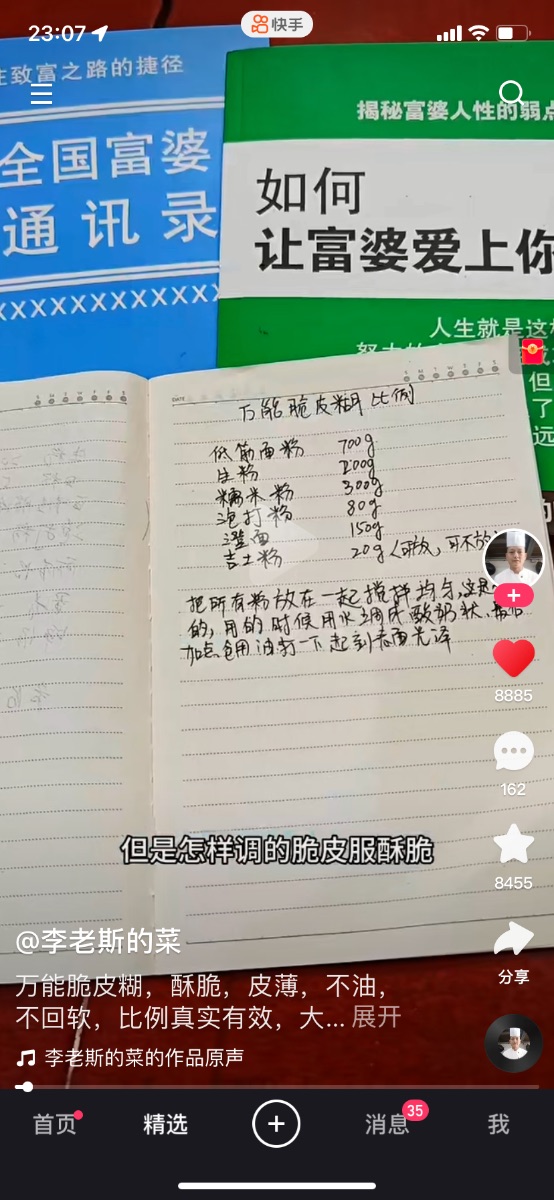 23:07
快手
致富之路的捷径
全国富婆
通讯录
XXXXXXXXXXXX
揭秘富婆人性的弱点
如何
让富婆爱上你
人生就是这样
但
了
远
DATE
S M T W T F S
万能脆皮糊比例
低筋面粉 700g
生粉 200g
糯米粉 300g
泡打粉 80g
澄面 150g
吉士粉 20g(可放,可不放
把所有粉放在一起搅拌均匀,这是
的,用的时候用水调成酸奶状
加点色用油封一下起到表面光泽
8885
162
8455
分享
但是怎样调的脆皮服酥脆
@李老斯的菜
万能脆皮糊，酥脆，皮薄，不油，
不回软，比例真实有效，大... 展开
李老斯的菜的作品原声
首页 精选 消息 35 我